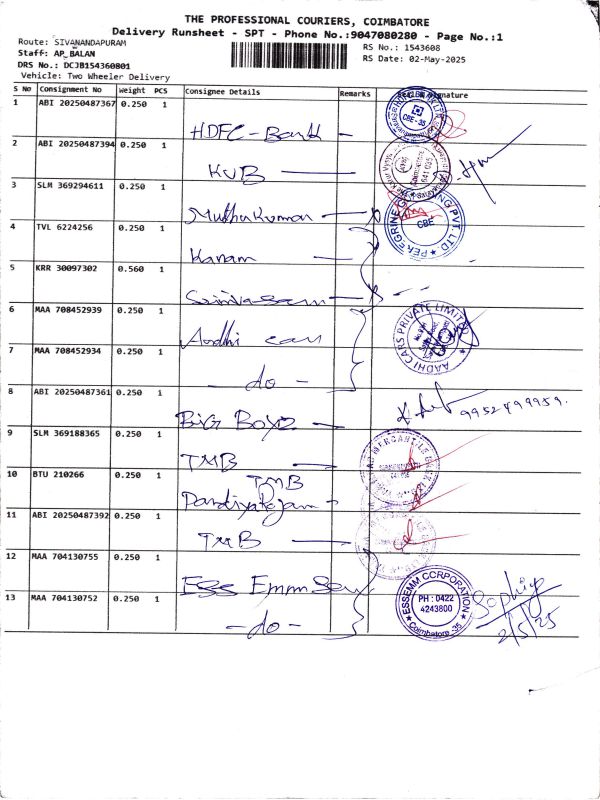 THE PROFESSIONAL COURIERS, COIMBATORE
Delivery Runsheet - SPT - Phone No.:9047080280 - Page No.:1
Route: SIVANANDAPURAM
RS No.: 1543608
Staff: AP_BALAN
RS Date: 02-May-2025
DRS No.: DCJB154360801
Vehicle: Two Wheeler Delivery
S No Consignment No Weight PCS Consignee Details Remarks Signature
1 ABI 20250487367 0.250 1
HDFC-Bank -
CBE-35
2 ABI 20250487394 0.250 1
KVB
641 035
3 SLM 369294611 0.250 1
Muthu Kumar
PEREGRINE PVT. LTD
CBE
4 TVL 6224256 0.250 1
Kanam
5 KRR 30097302 0.560 1
Srinivasan
6 MAA 708452939 0.250 1
Aadhi cars
AADHI CARS PRIVATE LIMITED
7 MAA 708452934 0.250 1
-do-
8 ABI 20250487361 0.250 1
BiG Boyz
9952499959.
9 SLM 369188365 0.250 1
TMB
10 BTU 210266 0.250 1
TMB
Pandiyarajan
11 ABI 20250487392 0.250 1
TMB
12 MAA 704130755 0.250 1
ESS Emm San
ESSEMM CORPORATION
PH : 0422
4243800
Coimbatore-35
Sophiya
2/5/25
13 MAA 704130752 0.250 1
-do-